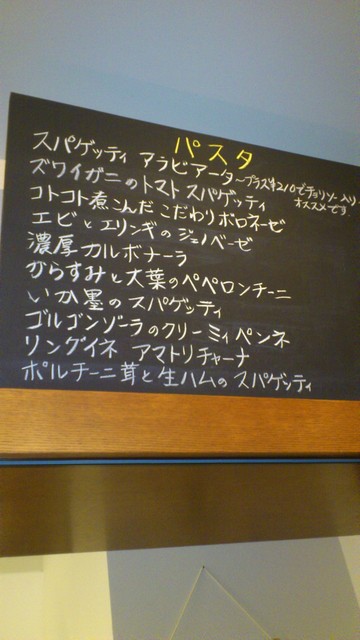 パスタ
スパゲッティ アラビアータ〜プラス¥210でチョリソー入り
オススメです
ズワイガニのトマトスパゲッティ
コトコト煮こんだこだわりボロネーゼ
エビとエリンギのジェノベーゼ
濃厚カルボナーラ
からすみと大葉のペペロンチーニ
いか墨のスパゲッティ
ゴルゴンゾーラのクリーミィペンネ
リングイネ アマトリチャーナ
ポルチーニ茸と生ハムのスパゲッティ